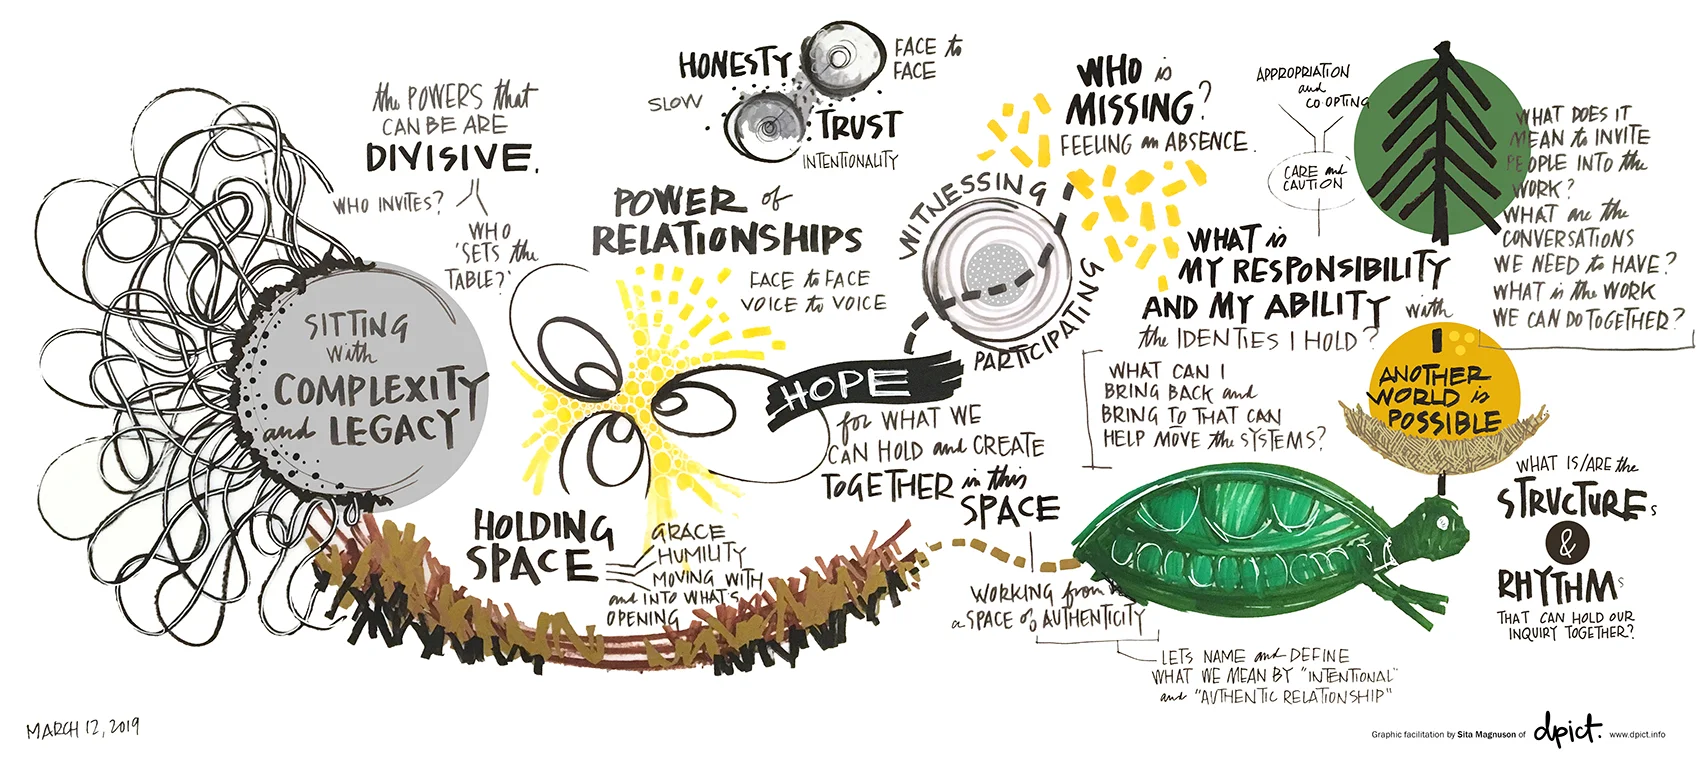 the POWERS that
CAN BE ARE
DIVISIVE.
WHO INVITES?
WHO
'SETS the
TABLE?'
SITTING
with
COMPLEXITY
and LEGACY
HONESTY
FACE to
FACE
SLOW
TRUST
INTENTIONALITY
POWER of
RELATIONSHIPS
FACE to FACE
VOICE to VOICE
HOLDING
SPACE
GRACE
HUMILITY
MOVING WITH
and INTO WHAT'S
OPENING
HOPE
for WHAT WE
CAN HOLD and CREATE
TOGETHER in this
SPACE
WITNESSING
PARTICIPATING
WHO is
MISSING?
FEELING an ABSENCE.
WHAT is
MY RESPONSIBILITY
AND MY ABILITY with
the IDENTIES I HOLD?
WHAT CAN I
BRING BACK and
BRING TO THAT CAN
HELP MOVE the SYSTEMS?
APPROPRIATION
and
CO OPTING
CARE and
CAUTION
WHAT DOES IT
MEAN to INVITE
PEOPLE INTO the
WORK?
WHAT are the
CONVERSATIONS
WE NEED to HAVE?
WHAT is the WORK
WE CAN DO TOGETHER?
ANOTHER
WORLD is
POSSIBLE
WHAT IS/ARE the
STRUCTUREs
&
RHYTHMs
THAT CAN HOLD OUR
INQUIRY TOGETHER?
WORKING from
a SPACE of AUTHENTICITY
LETS NAME and DEFINE
WHAT WE MEAN BY "INTENTIONAL"
and "AUTHENTIC RELATIONSHIP"
MARCH 12, 2019
Graphic facilitation by Sita Magnuson of dpict. www.dpict.info